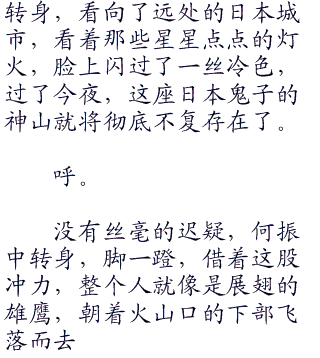 转身，看向了远处的日本城
市，看着那些星星点点的灯
火，脸上闪过了一丝冷色，
过了今夜，这座日本鬼子的
神山就将彻底不复存在了。
呼。
没有丝毫的迟疑，何振
中转身，脚一蹬，借着这股
冲力，整个人就像是展翅的
雄鹰，朝着火山口的下部飞
落而去